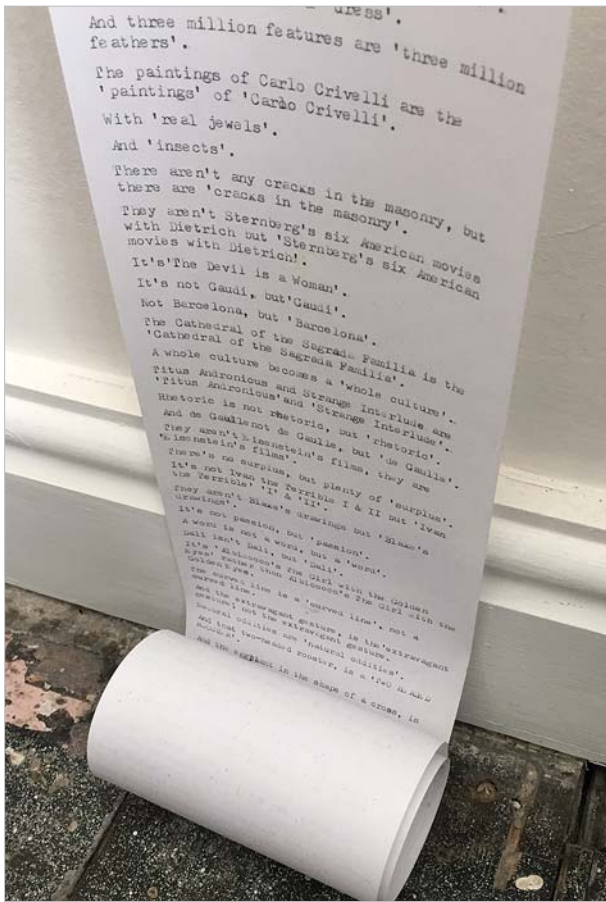 dress'.
And three million features are 'three million
feathers'.
The paintings of Carlo Crivelli are the
'paintings' of 'Carlo Crivelli'.
With 'real jewels'.
And 'insects'.
There aren't any cracks in the masonry, but
there are 'cracks in the masonry'.
They aren't Sternberg's six American movies
with Dietrich but 'Sternberg's six American
movies with Dietrich'.
It's'The Devil is a Woman'.
It's not Gaudi, but'Gaudi'.
Not Barcelona, but 'Barcelona'.
The Cathedral of the Sagrada Familia is the
'Cathedral of the Sagrada Familia'.
A whole culture becomes a 'whole culture'.
Titus Andronicus and Strange Interlude are
'Titus Andronicus'and 'Strange Interlude'.
Rhetoric is not rhetoric, but 'rhetoric'.
And de Gaullenot de Gaulle, but 'de Gaulle'.
They aren't Eisenstein's films, they are
'Eisenstein's films'.
There's no surplus, but plenty of 'surplus'.
It's not Ivan the Terrible I & II but 'Ivan
the Terrible' 'I' & 'II'.
They aren't Blake's drawings but 'Blake's
drawings'.
It's not passion, but 'passion'.
A word is not a word, but a 'word'.
Dali isn't Dali, but 'Dali'.
It's 'Albicocco's The Girl with the Golden
Eyes' rather than Albicocco's The Girl with the
Golden Eyes.
The curved line is a 'curved line', not a
curved line.
And the extravagant gesture, is the'extravagant
gesture; not the extravagant gesture.
Natural oddities are 'natural oddities'.
And that two-headed rooster, is a
And the eggplant in the shape of a cross, is